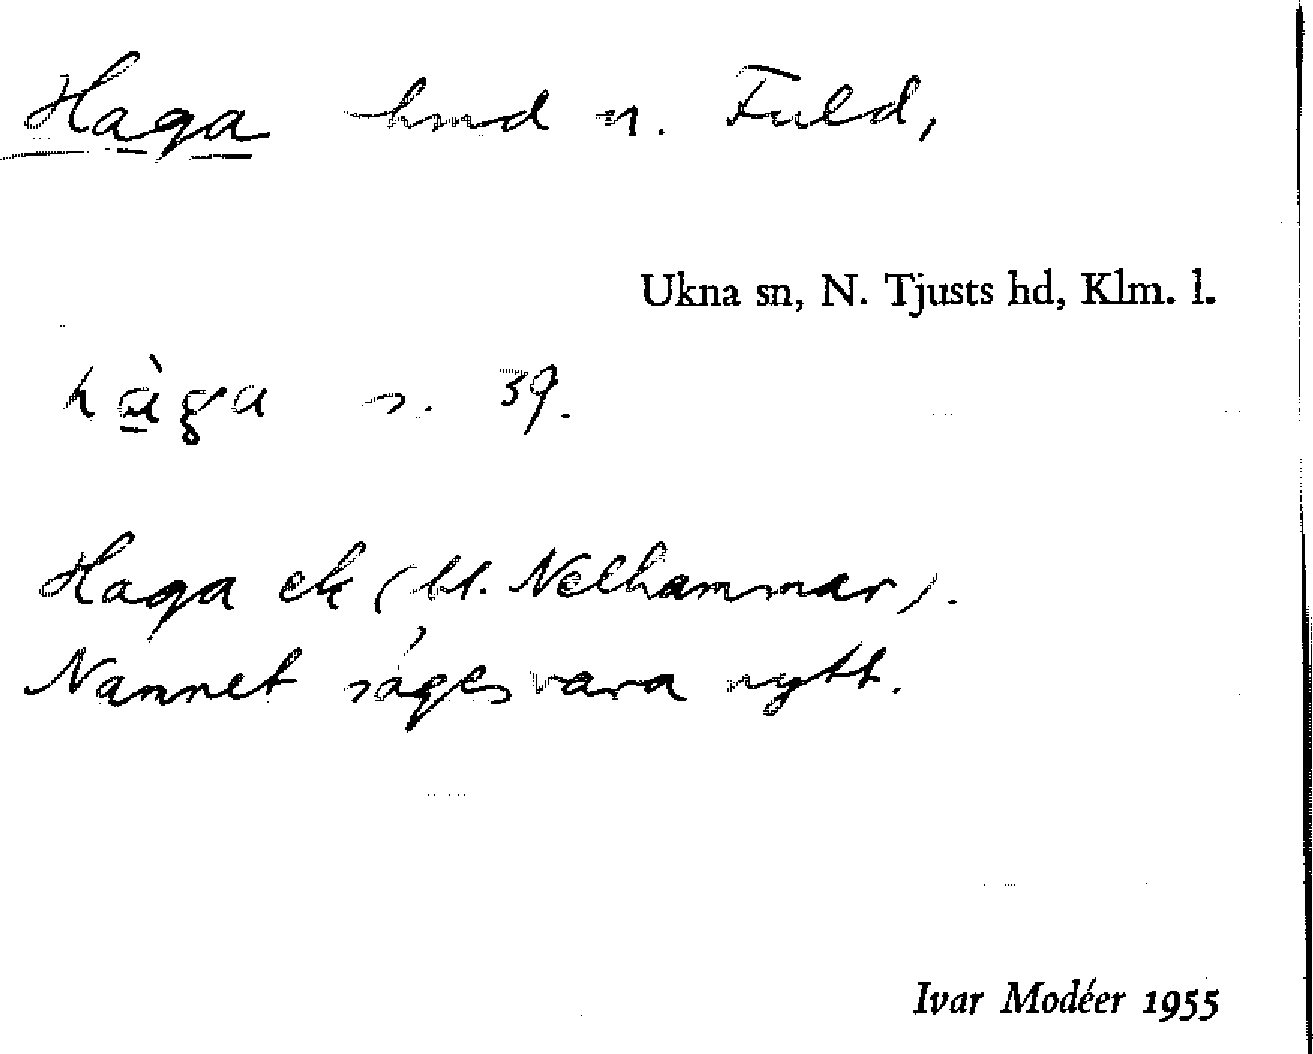 Haga hmd n. Fuld,
Ukna sn, N. Tjusts hd, Klm. l.
hàga s. 39.
Haga ek (bl. Nelhammar).
Namnet säges vara nytt.
Ivar Modéer 1955